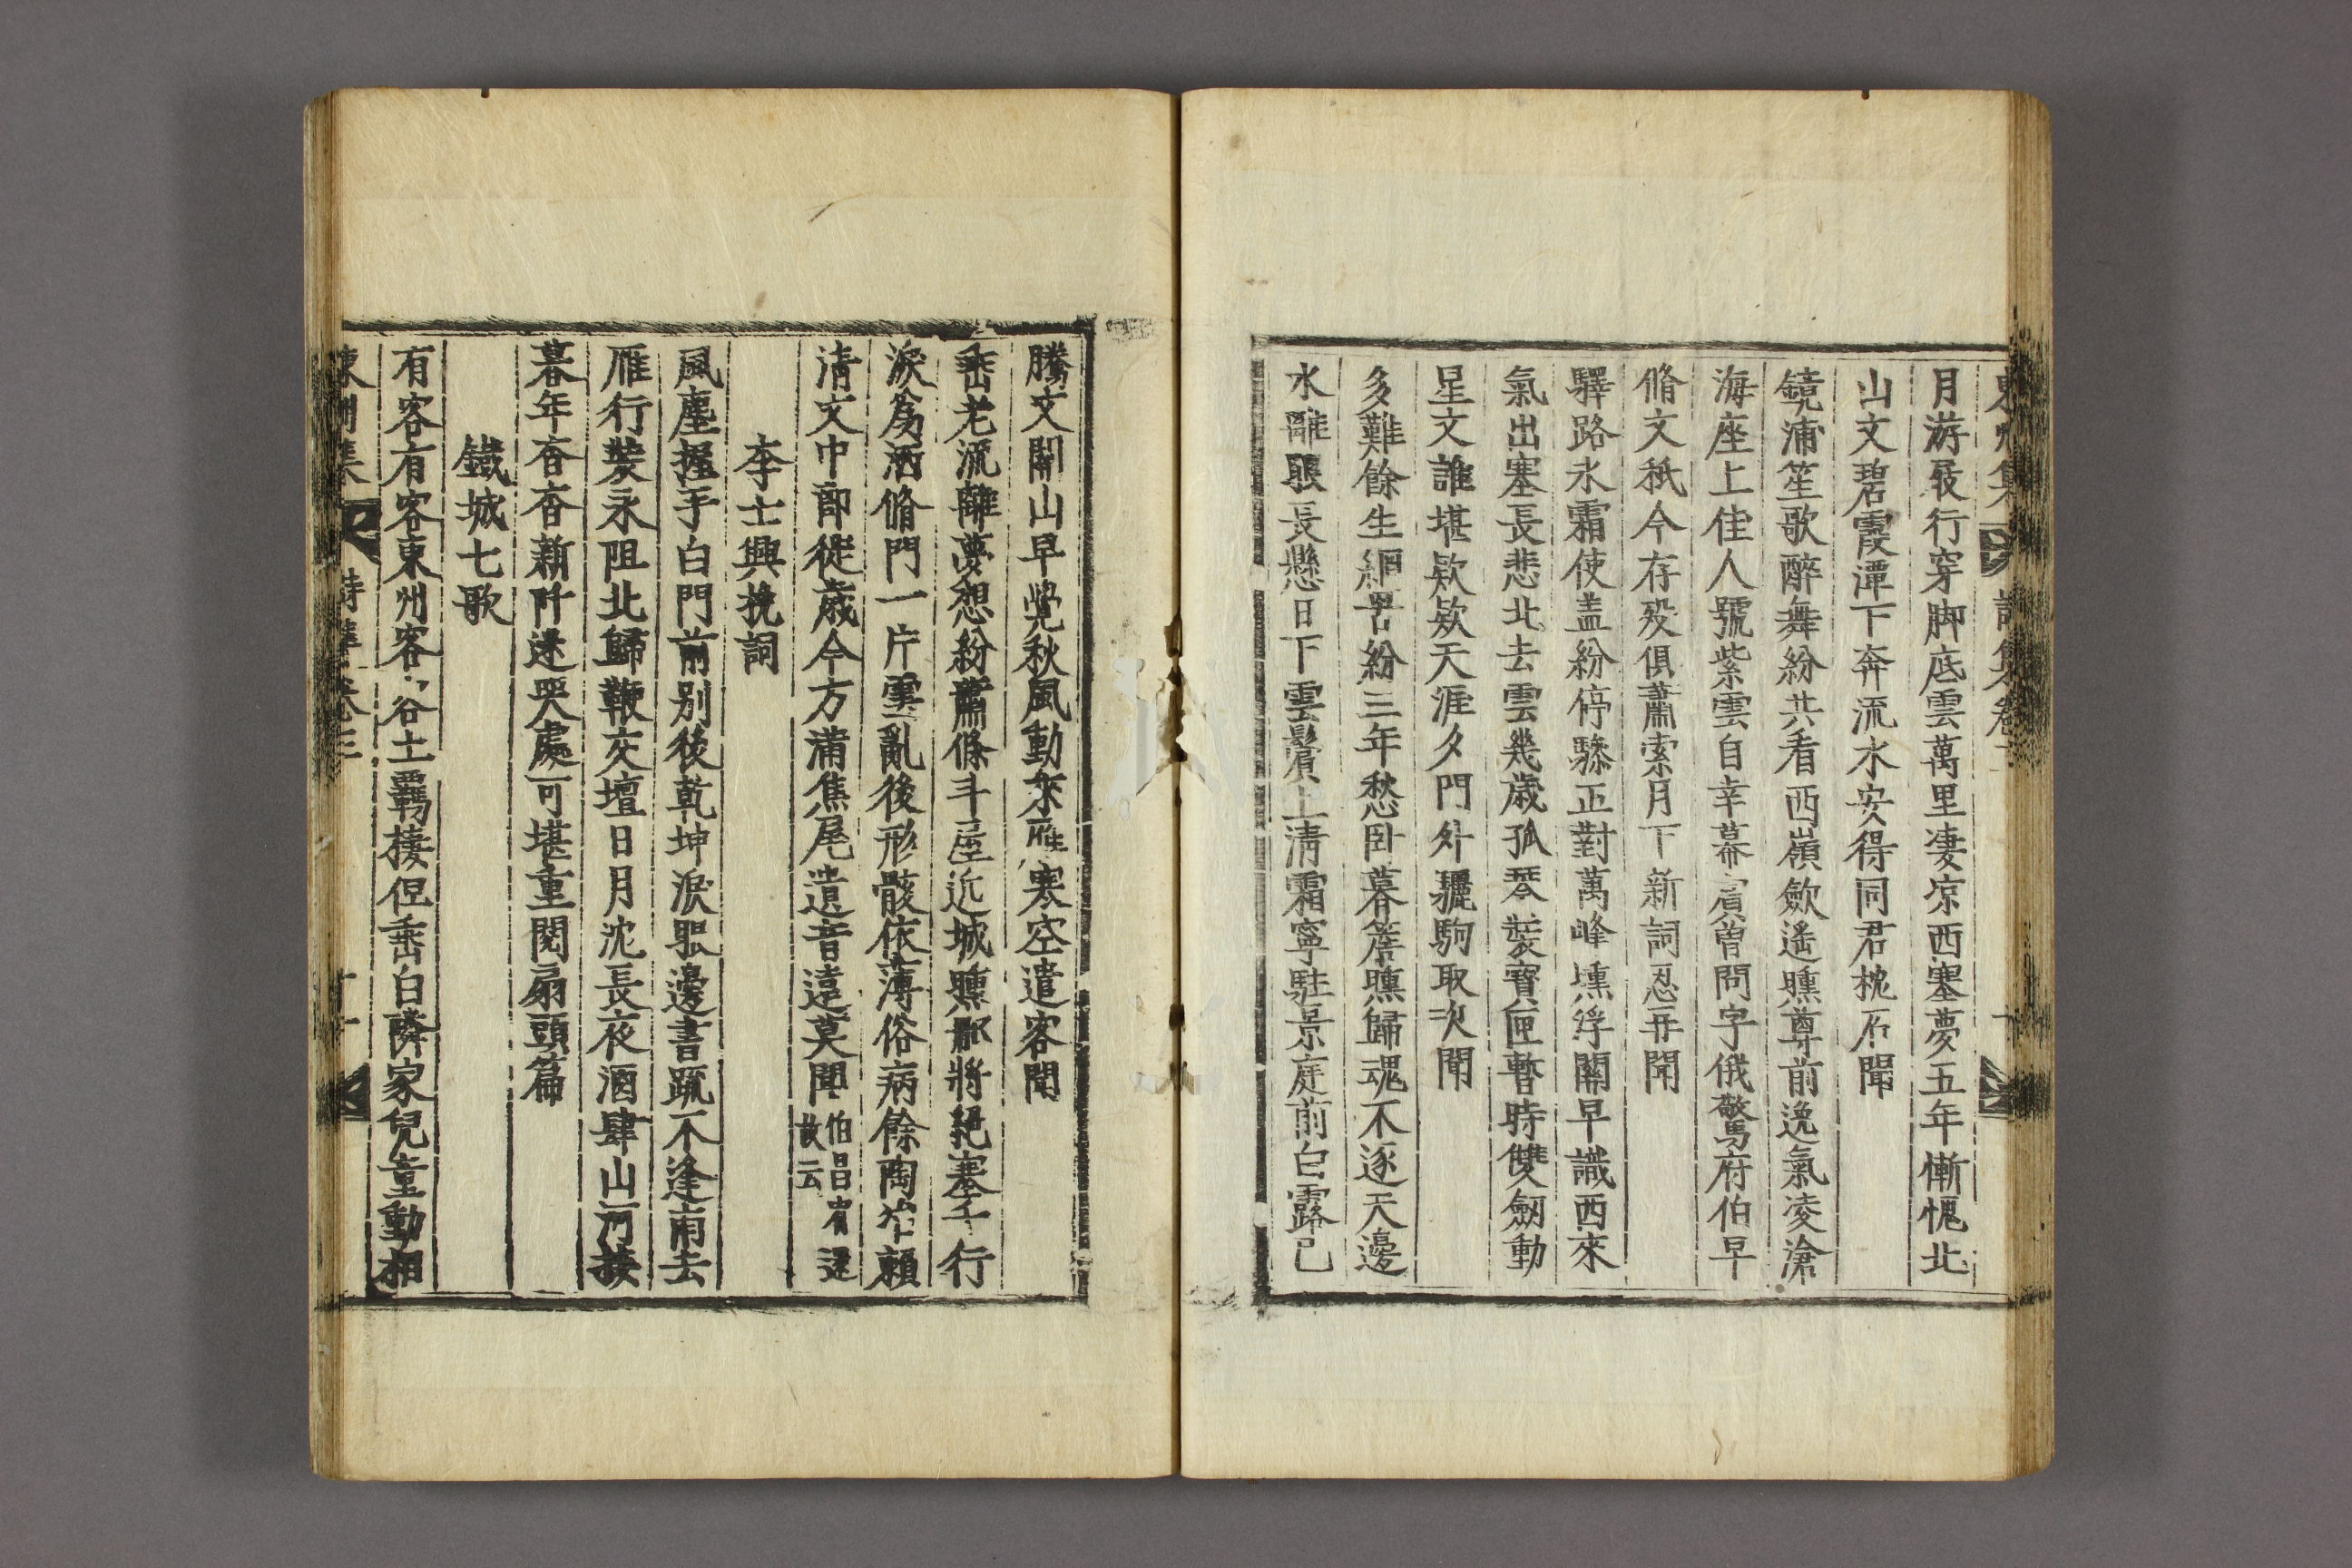 月游屐行穿脚底雲萬里凄凉西塞夢五年慚愧北
山文碧霞潭下奔流水安得同君枕石聞
鏡浦笙歌醉舞紛共看西嶺歛遙曛尊前逸氣凌滄
海座上佳人號紫雲自幸幕賓曾問字俄驚府伯早
脩文秖今存歿俱蕭索月下新詞忍再聞
驛路氷霜使盖紛停驂正對萬峰壎浮關早識西來
氣出塞長悲北去雲幾歲孤琴裝寶匣暫時雙劒動
星文誰堪欵欵天涯夕門外驪駒取次聞
多難餘生網罟紛三年愁卧暮簷曛歸魂不逐天邊
水離眼長懸日下雲鬢上清霜寧駐景庭前白露已
騰文關山早覺秋風動來雁寒空遣客聞
垂老流離夢想紛蕭條斗屋近城曛郍將絕塞千行
淚爲洒脩門一片雲亂後形骸依薄俗病餘陶冶賴
清文中郎從歲今方滿焦尾遺音遠莫聞 伯昌有還
故云
李士興挽詞
風塵握手白門前別後乾坤淚眼邊書䟽不逢南去
雁行裝永阻北歸鞭交壇日月沈長夜酒肆山河接
暮年杳杳新阡迷哭處可堪重閱扇頭篇
鐵城七歌
有客有客東州客谷土羈棲但垂白隣家兒童動相
東州集 詩集卷三 十一